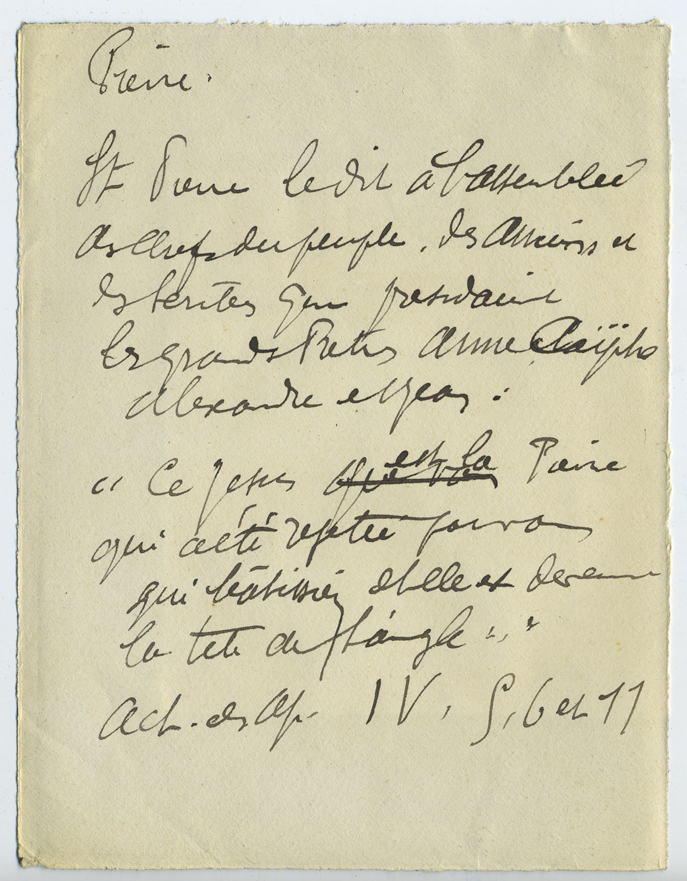 Pierre.
St Pierre le dit à l'assemblée
des chefs du peuple, des anciens et
des scribes que présidaient
les grands Prêtres Anne Caïphe
Alexandre et Jean :
" Ce Jésus est la Pierre
qui a été rejetée par vous
qui bâtissiez et elle est devenue
la tête de l'angle "."
Act. des Ap. IV, 5, 6 et 11